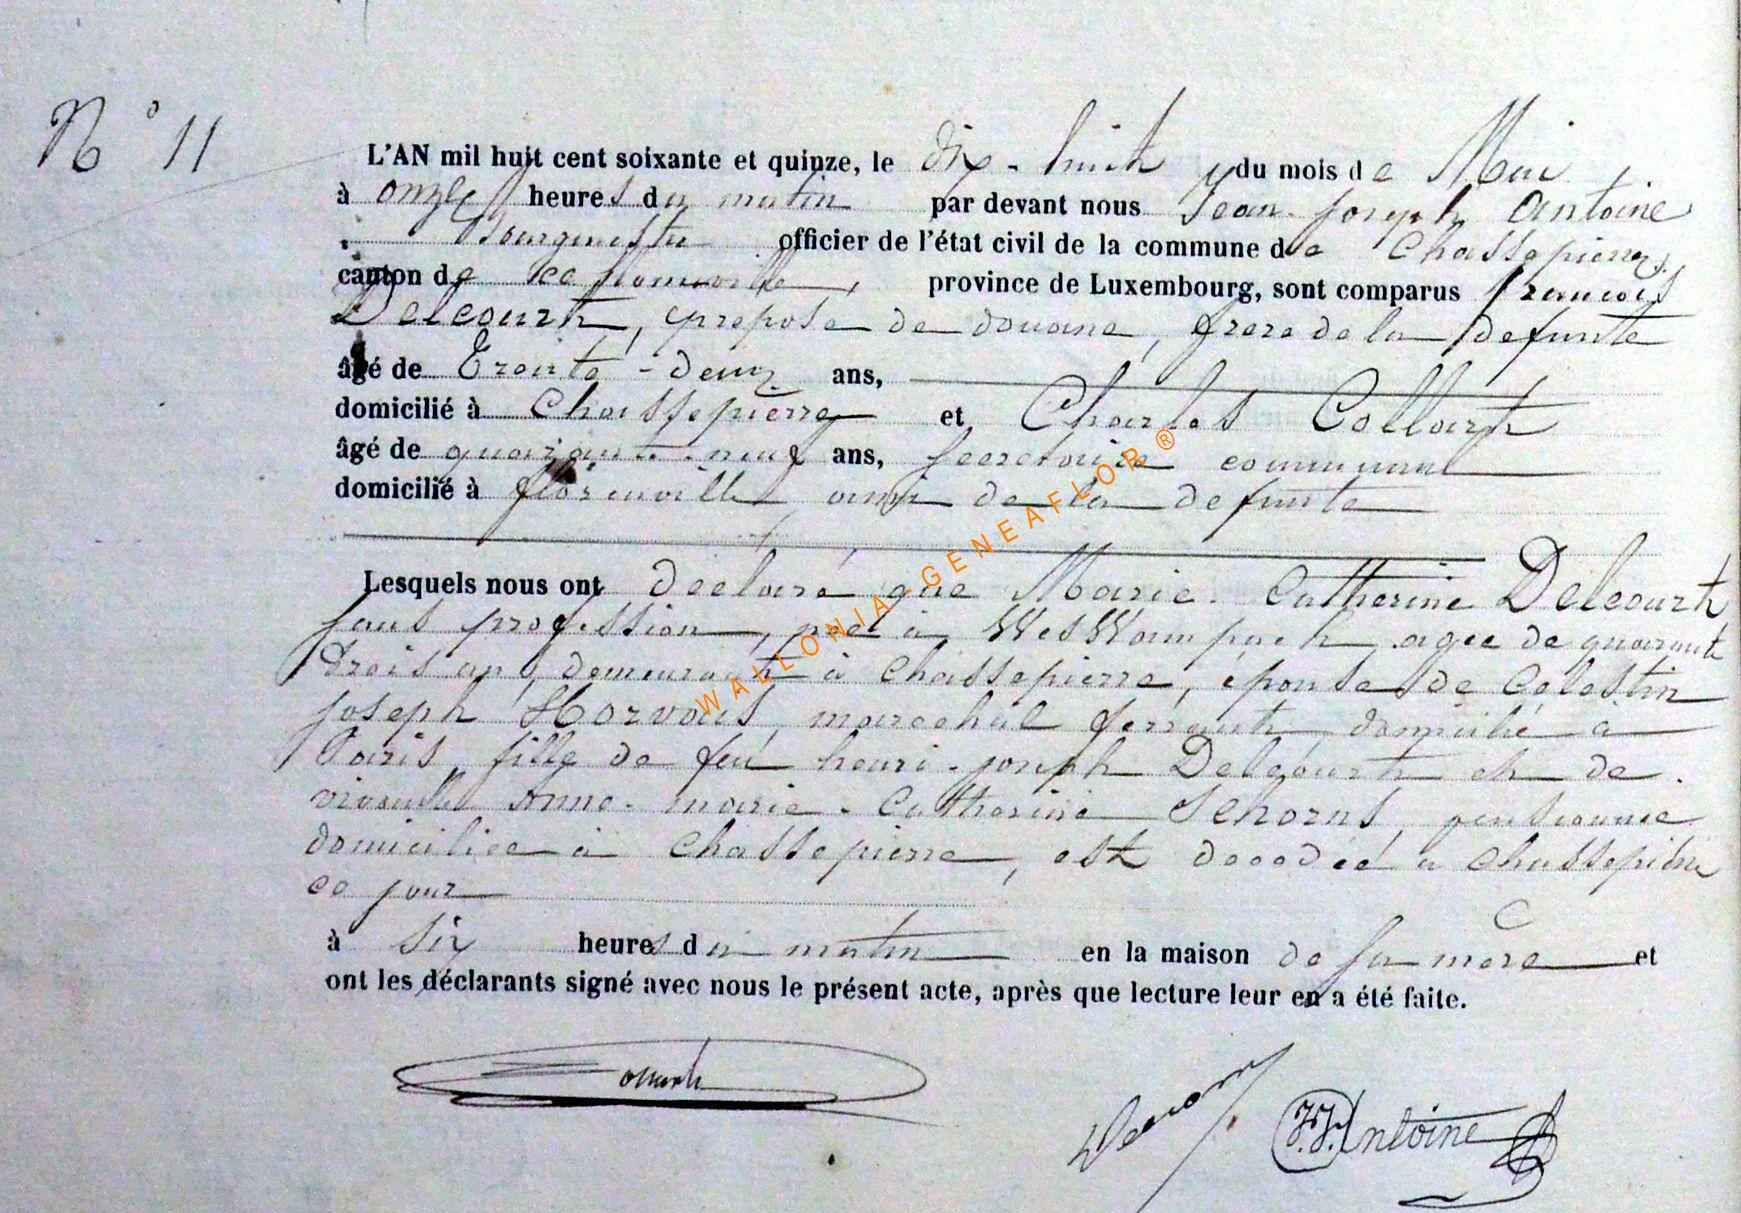 N° 11
L'AN mil huit cent soixante et quinze, le dix-huit du mois de Mai
à onze heures du matin par devant nous Jean Joseph Antoine
Bourgmestre officier de l'état civil de la commune de Chassepierre,
canton de florenville, province de Luxembourg, sont comparus François
Delcourt, preposé de douane, frere de la defunte
âgé de Trente-deux ans,
domicilié à Chassepierre et Charles Collart
âgé de quarante-neuf ans, secretaire communal
domicilié à florenville, ami de la defunte
Lesquels nous ont declaré que Marie-Catherine Delcourt
sans profession, née à WesWampach agée de quarante
trois ans, demeurant à Chassepierre, épouse de Celestin
joseph, marechal ferrant, domicilié a
Paris, fille de feu henri-joseph Delcourt et de
vivante Anne-marie-Catherine, pensionnée
domiciliee à Chassepierre, est décédée a Chassepierre
ce jour
à six heures du matin en la maison de sa mère et
ont les déclarants signé avec nous le présent acte, après que lecture leur en a été faite.
Collart
J.J. Antoine
WALLONIA-GENEAFLOR®